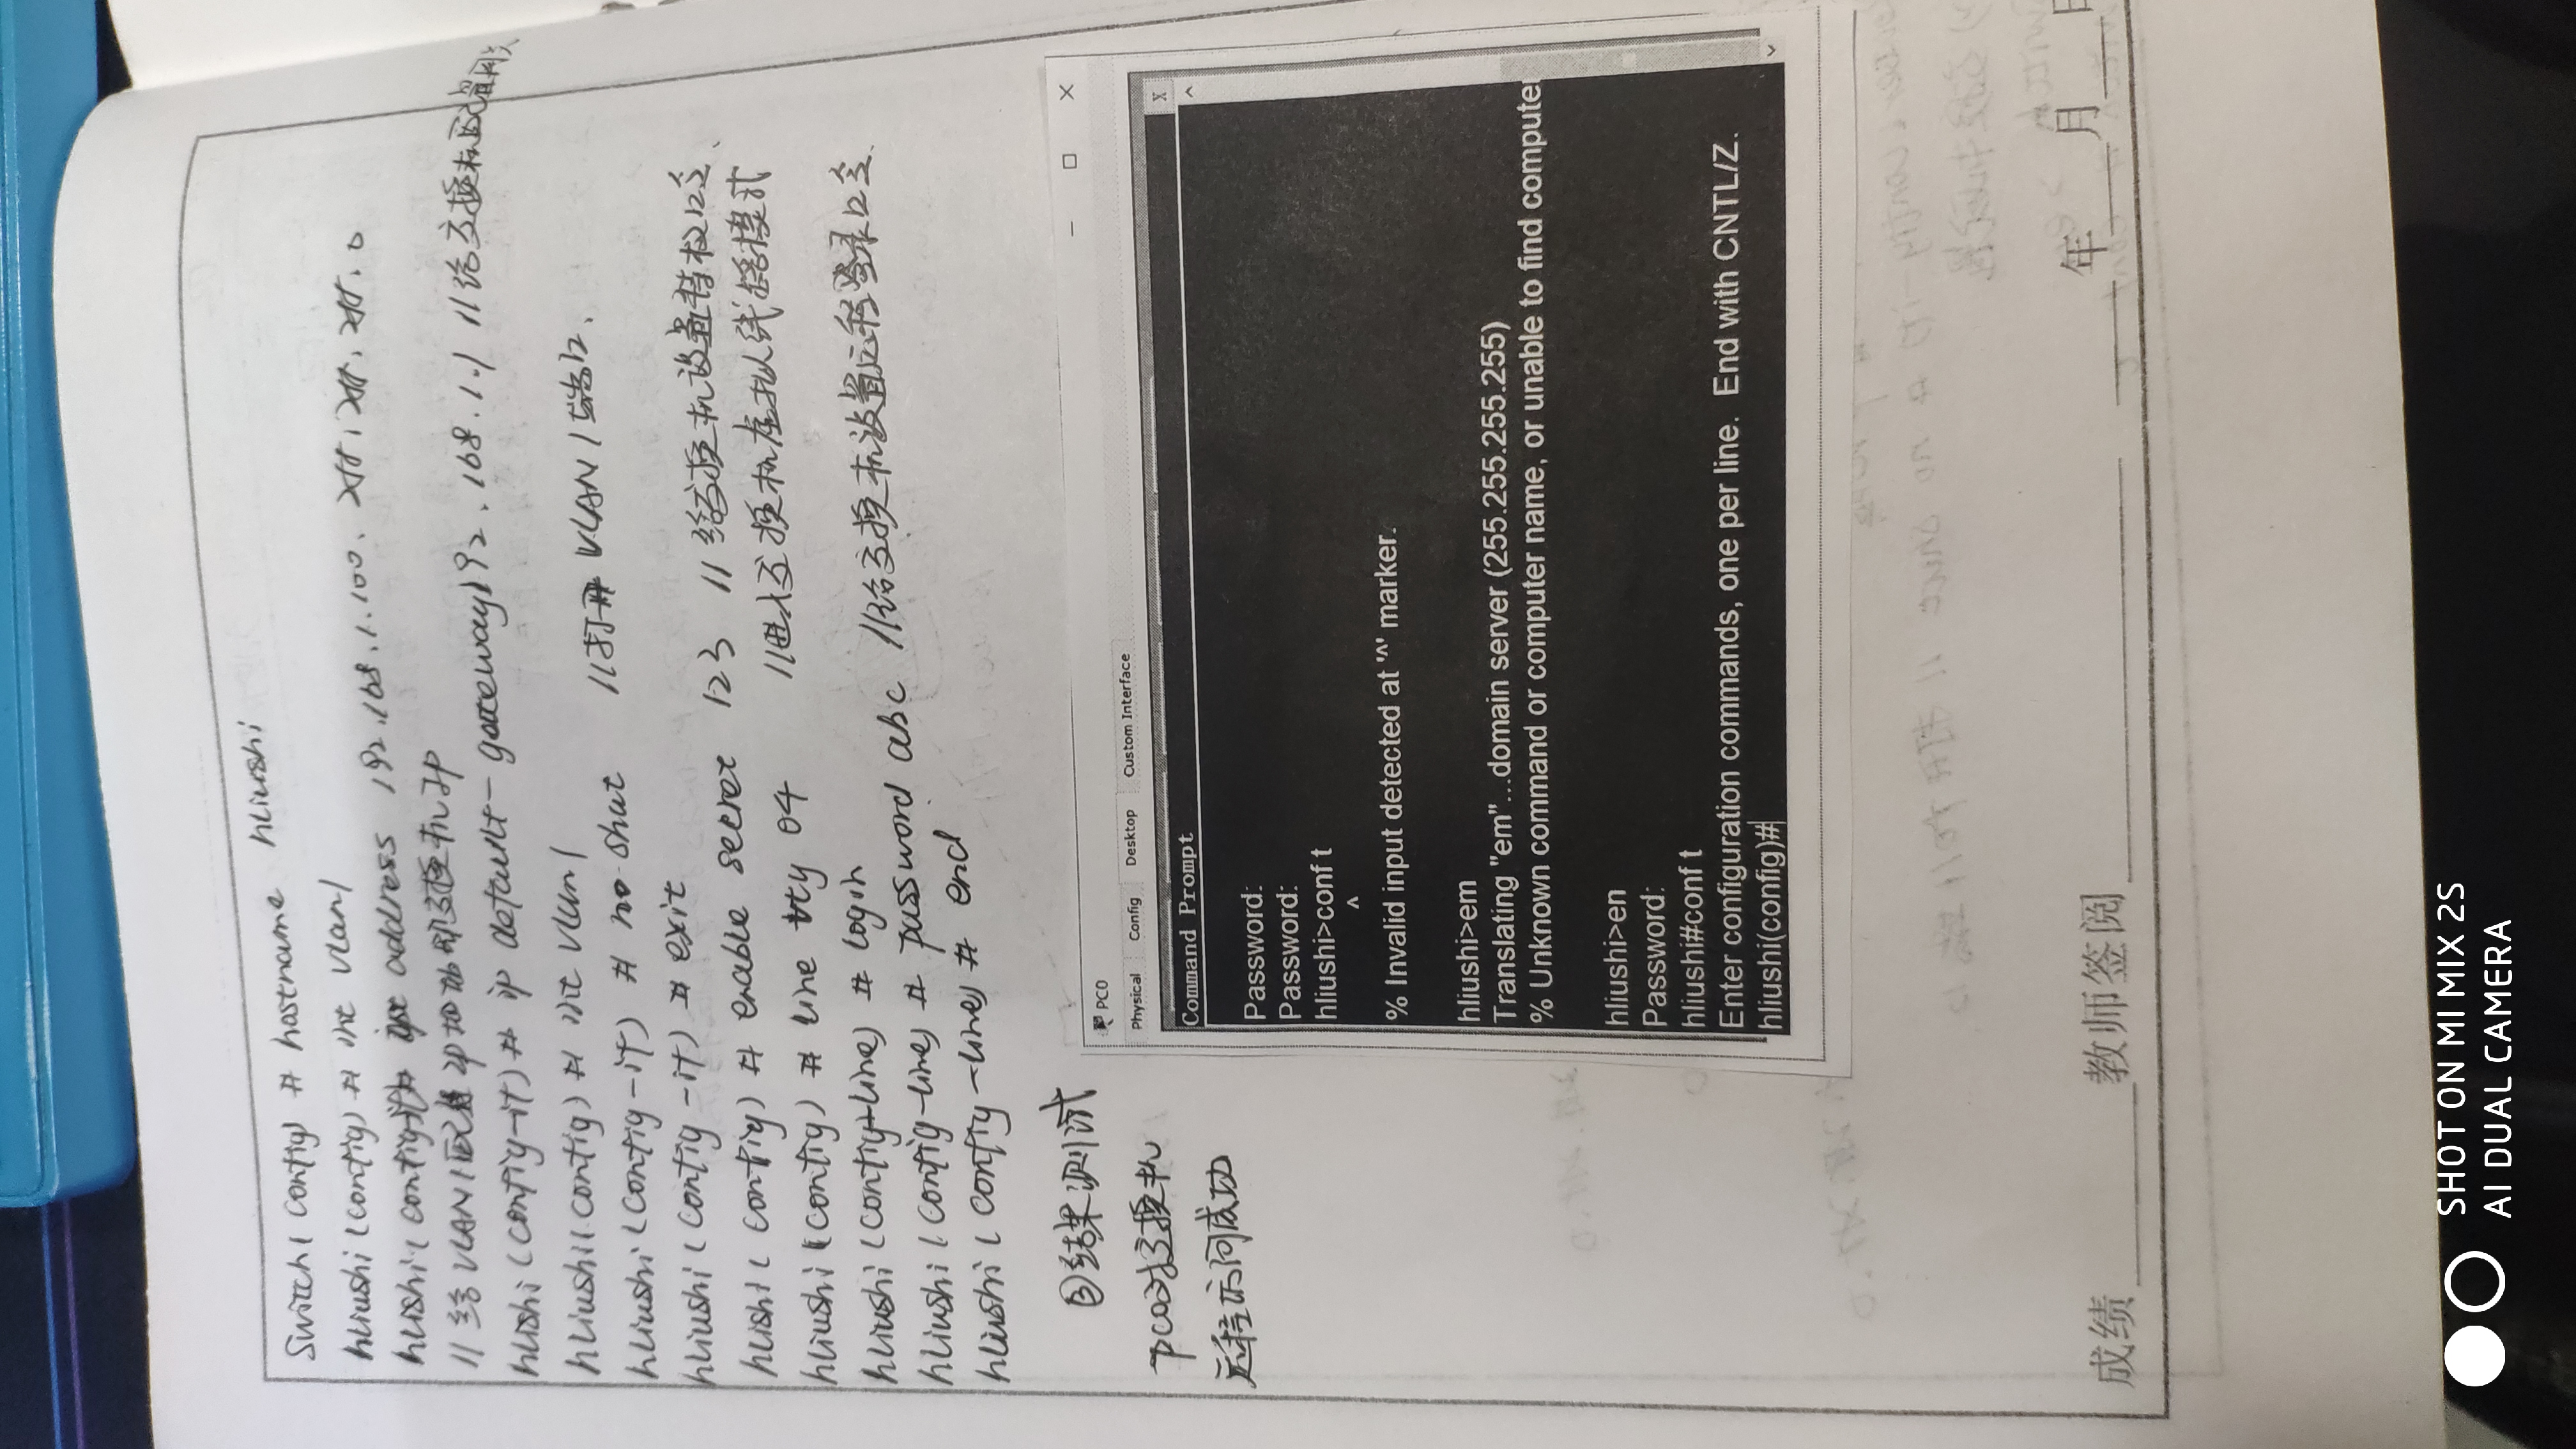 Switch(config)# hostname hliushi
hliushi(config)# int vlan1
hlishi(config-if)# ip address 192.168.1.100. 255.255.255.0
//给VLAN1配置IP地址即交换机IP
hlishi(config-it)# ip default-gateway192.168.1.1 //给交换机配置网关
hliushi(config)# int vlan1
hliushi(config-it)# no shut //打开VLAN1端口.
hliushi(config-it)# exit
hlishi(config)# enable secret 123 //给交换机设置特权口令.
hliushi(config)# line vty 04 //进入交换机虚拟线路模式
hliushi(config-line)# login
hliushi(config-line)# password abc //给交换机设置远程登录口令.
hliushi(config-line)# end
③结果测试
pc0对交换机
远程访问成功
PC0
Physical Config Desktop Custom Interface
X
Command Prompt
Password:
Password:
hliushi>conf t
^
% Invalid input detected at '^' marker.
hliushi>em
Translating "em"...domain server (255.255.255.255)
% Unknown command or computer name, or unable to find computer
hliushi>en
Password:
hliushi#conf t
Enter configuration commands, one per line. End with CNTL/Z.
hliushi(config)#
成绩 教师签阅 年 月 日
SHOT ON MI MIX 2S
AI DUAL CAMERA